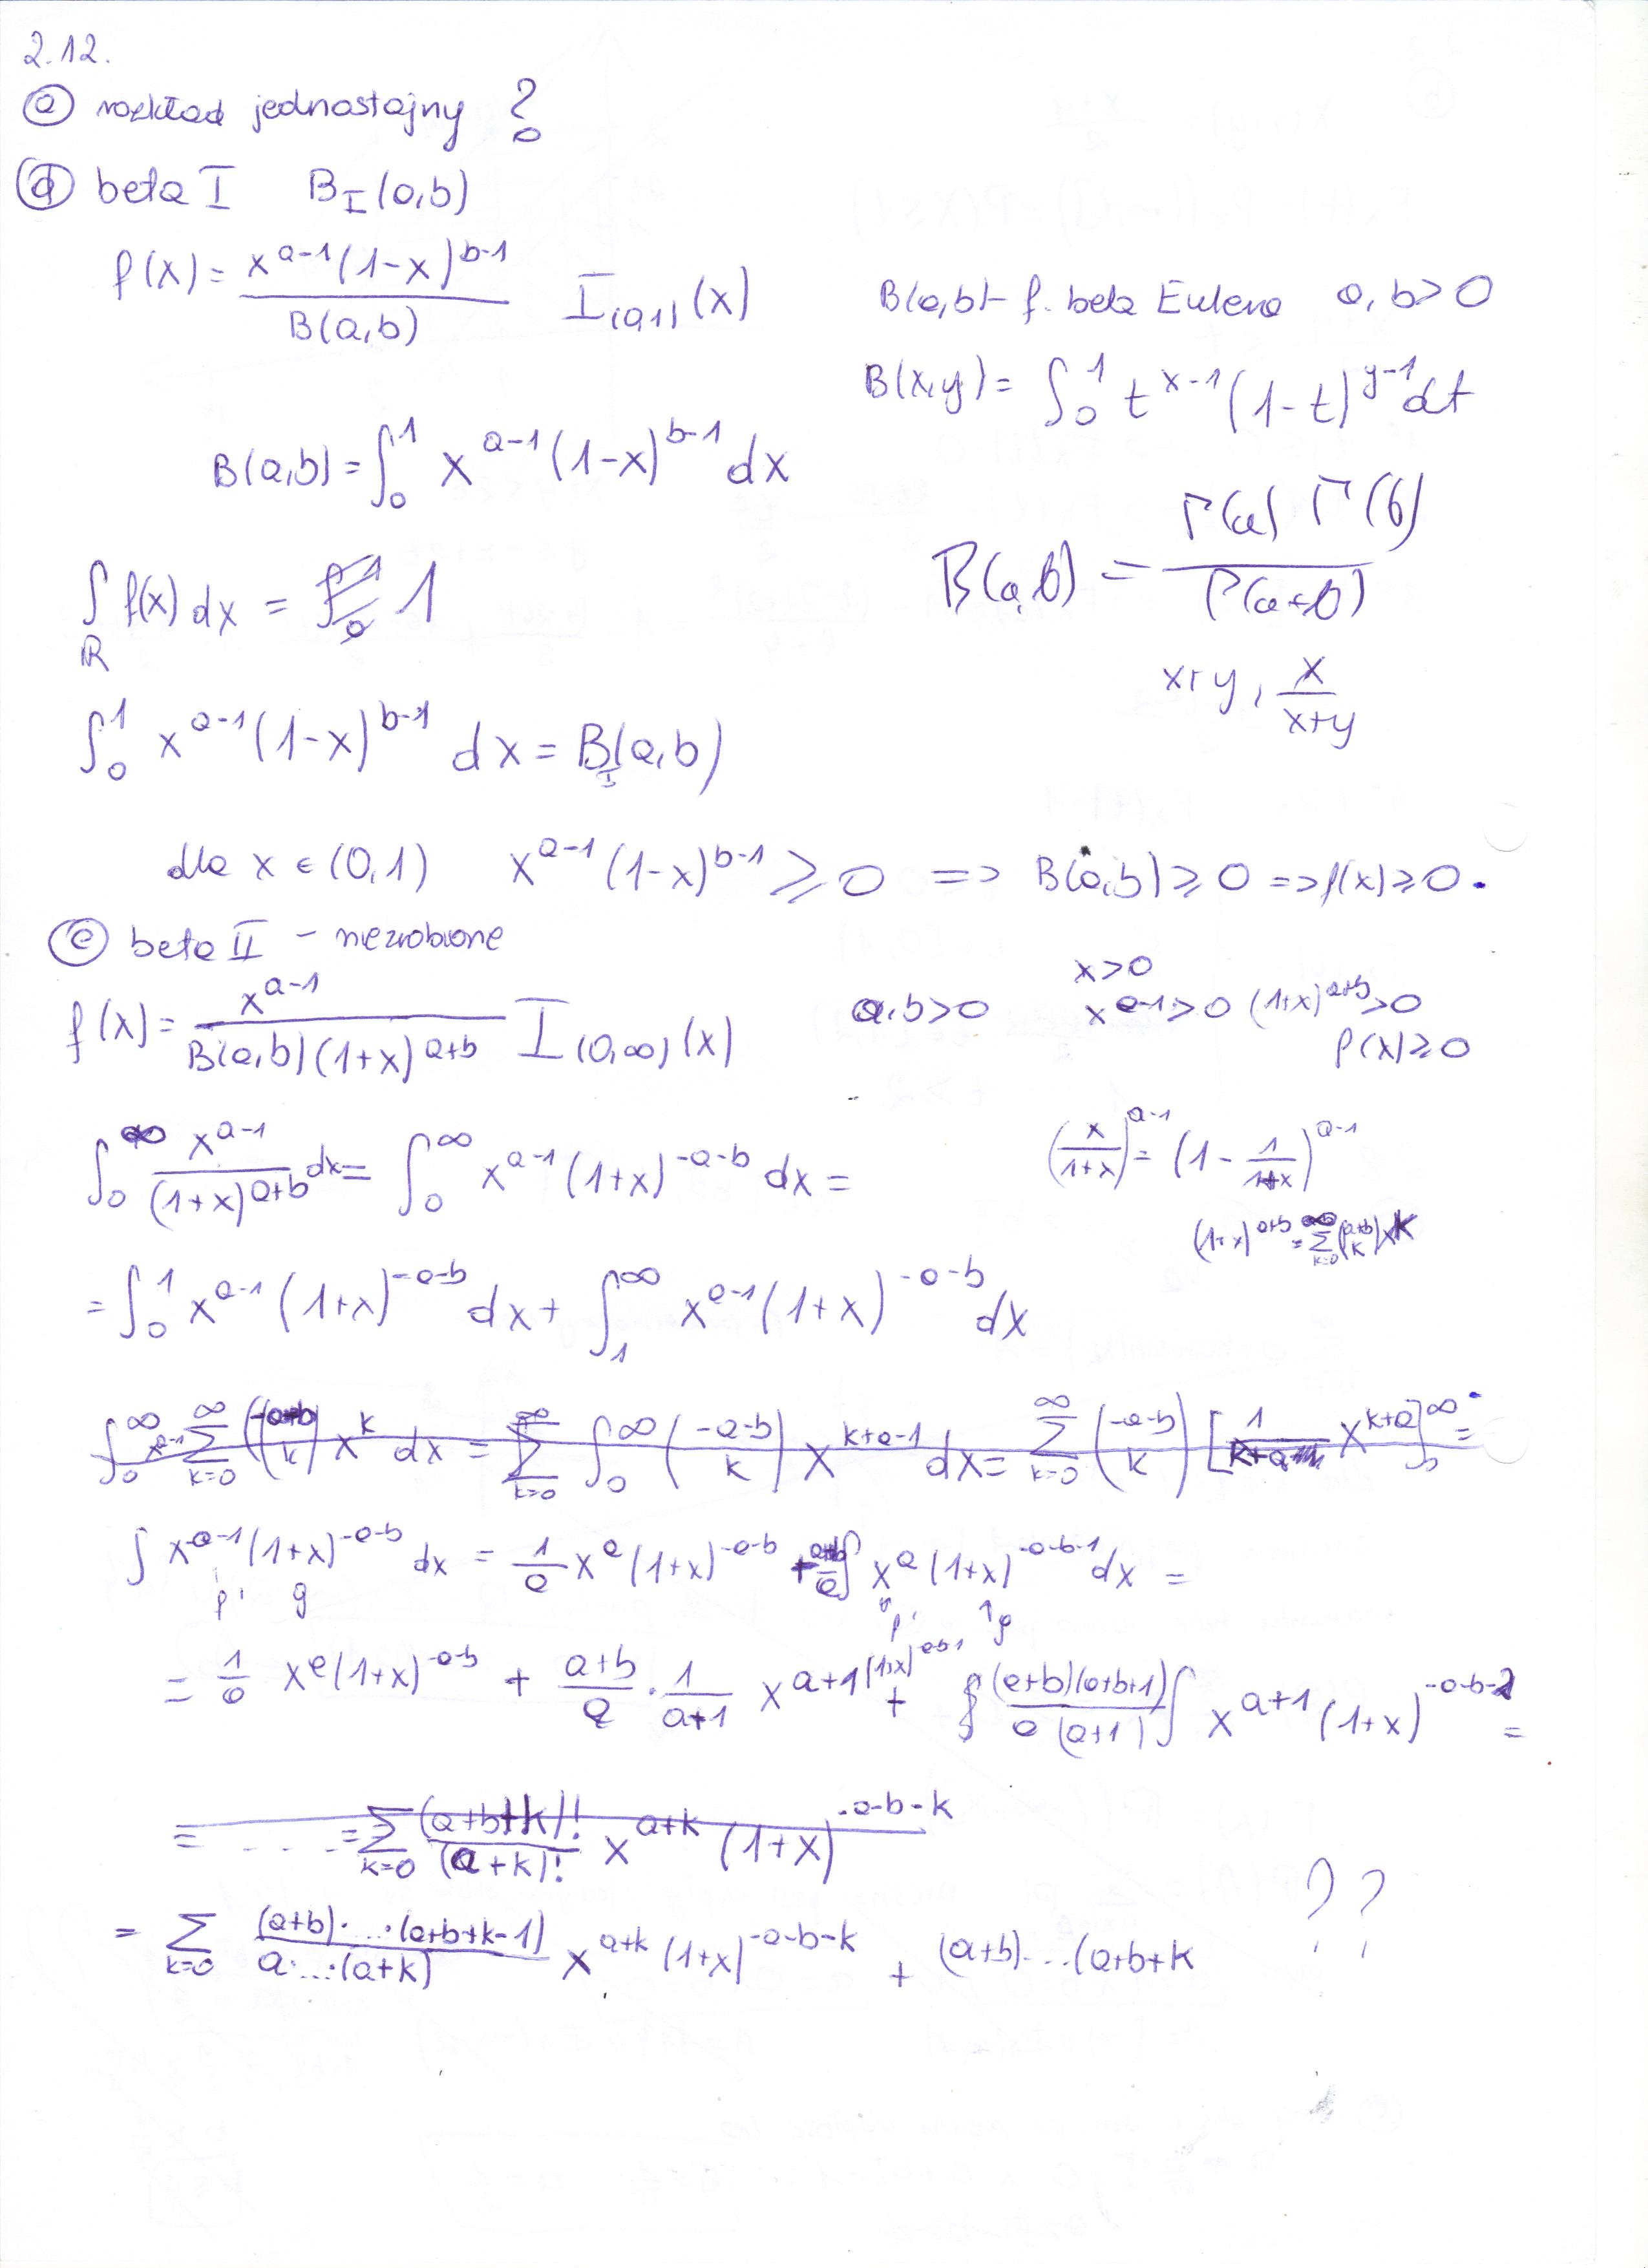 2.12.
ⓐ rozkład jednostajny ?
ⓓ beta I B_I(a,b)
f(x) = \frac{x^{a-1}(1-x)^{b-1}}{B(a,b)} I_{(0,1)}(x)
B(a,b) - f. beta Eulera a, b > 0
B(x,y) = ∫_0^1 t^{x-1}(1-t)^{y-1} dt
B(a,b) = ∫_0^1 x^{a-1}(1-x)^{b-1} dx
B(a,b) = \frac{Γ(a) Γ(b)}{Γ(a+b)}
∫_ℝ f(x) dx = 1
x+y, \frac{x}{x+y}
∫_0^1 x^{a-1}(1-x)^{b-1} dx = B(a,b)
dla x ∈ (0,1) x^{a-1}(1-x)^{b-1} ≥ 0 => B(a,b) ≥ 0 => f(x) ≥ 0.
ⓔ beta II - niezrobione
f(x) = \frac{x^{a-1}}{B(a,b)(1+x)^{a+b}} I_{(0,∞)}(x) a,b > 0
x > 0
x^{a-1} > 0 (1+x)^{a+b} > 0
f(x) ≥ 0
∫_0^∞ \frac{x^{a-1}}{(1+x)^{a+b}} dx = ∫_0^∞ x^{a-1}(1+x)^{-a-b} dx =
(\frac{x}{1+x})^{a-1} = (1 - \frac{1}{1+x})^{a-1}
(1+x)^{a+b} = \sum_{k=0}^∞ \binom{a+b}{k} x^k
= ∫_0^1 x^{a-1}(1+x)^{-a-b} dx + ∫_1^∞ x^{a-1}(1+x)^{-a-b} dx
∫_0^∞ x^{a-1} \sum_{k=0}^∞ \binom{-a-b}{k} x^k dx = \sum_{k=0}^∞ ∫_0^∞ \binom{-a-b}{k} x^{k+a-1} dx = \sum_{k=0}^∞ \binom{-a-b}{k} [\frac{1}{k+a} x^{k+a}]_0^∞ =
∫ x^{a-1}(1+x)^{-a-b} dx = \frac{1}{a} x^a (1+x)^{-a-b} + \frac{a+b}{a} ∫ x^a (1+x)^{-a-b-1} dx =
f' g f' g
= \frac{1}{a} x^a (1+x)^{-a-b} + \frac{a+b}{a} · \frac{1}{a+1} x^{a+1} (1+x)^{-a-b-1} + \frac{(a+b)(a+b+1)}{a (a+1)} ∫ x^{a+1} (1+x)^{-a-b-2} =
= .... = \sum_{k=0} \frac{(a+b+k)!}{(a+k)!} x^{a+k} (1+x)^{-a-b-k}
= \sum_{k=0} \frac{(a+b)·...·(a+b+k-1)}{a·...·(a+k)} x^{a+k} (1+x)^{-a-b-k} + (a+b)·...(a+b+k
??